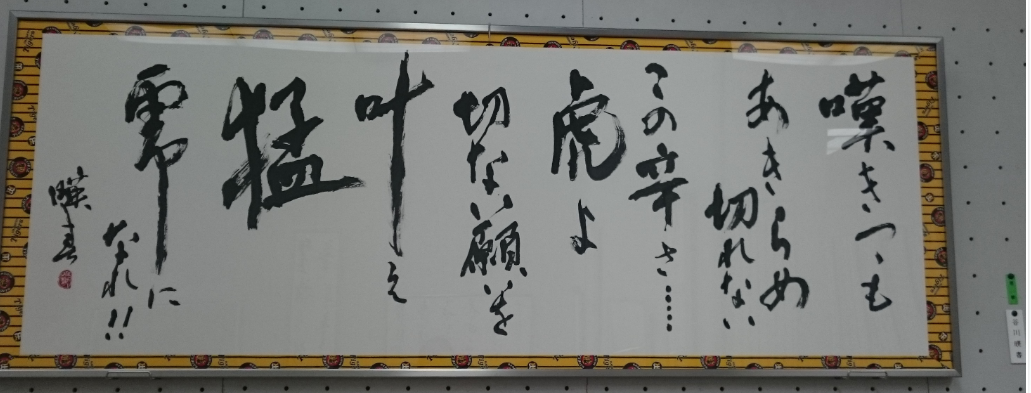 嘆きつゝも
あきらめ
切れない
この辛さ……
虎よ
切ない願いを
叶え
猛
乕に
なれ!!